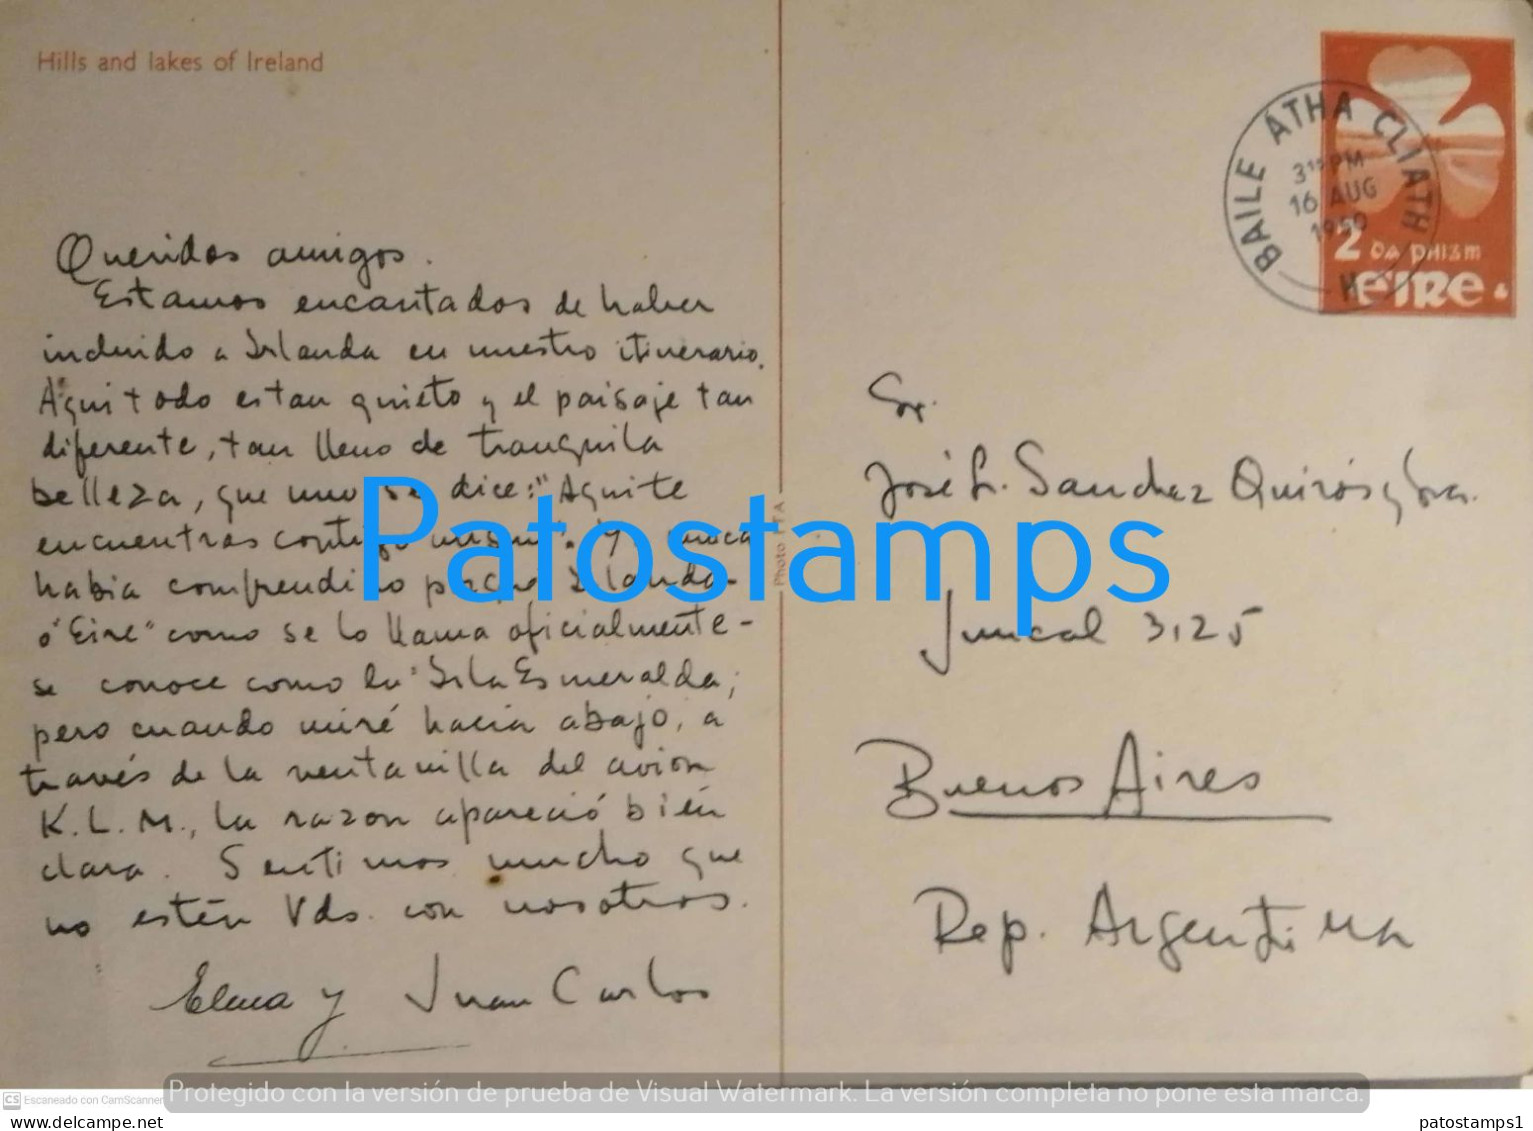 Hills and lakes of Ireland
BAILE ÁTHA CLIATH
3¹⁵ PM
16 AUG
1950
H
2 DA PHIZM
EIRE
Queridos amigos.
Estamos encantados de haber
incluido a Irlanda en nuestro itinerario.
Aqui todo es tan quieto y el paisaje tan
diferente, tan lleno de tranquila
belleza, que uno se dice: "Aqui te
encuentras contigo mismo". Y nunca
habia comprendido porque Irlanda-
ó "Eire" como se lo llama oficialmente-
se conoce como la Isla Esmeralda;
pero cuando miré hacia abajo, a
través de la ventanilla del avion
K.L.M., la razon apareció bién
clara. Sentimos mucho que
no estén Vds. con nosotros.
Elena y Juan Carlos
Photo PTA
Sr.
José L. Sanchez Quirós y Sra.
Juncal 3125
Buenos Aires
Rep. Argentina
Patostamps
Protegido con la versión de prueba de Visual Watermark. La versión completa no pone esta marca.
CS Escaneado con CamScanner
www.delcampe.net
patostamps1